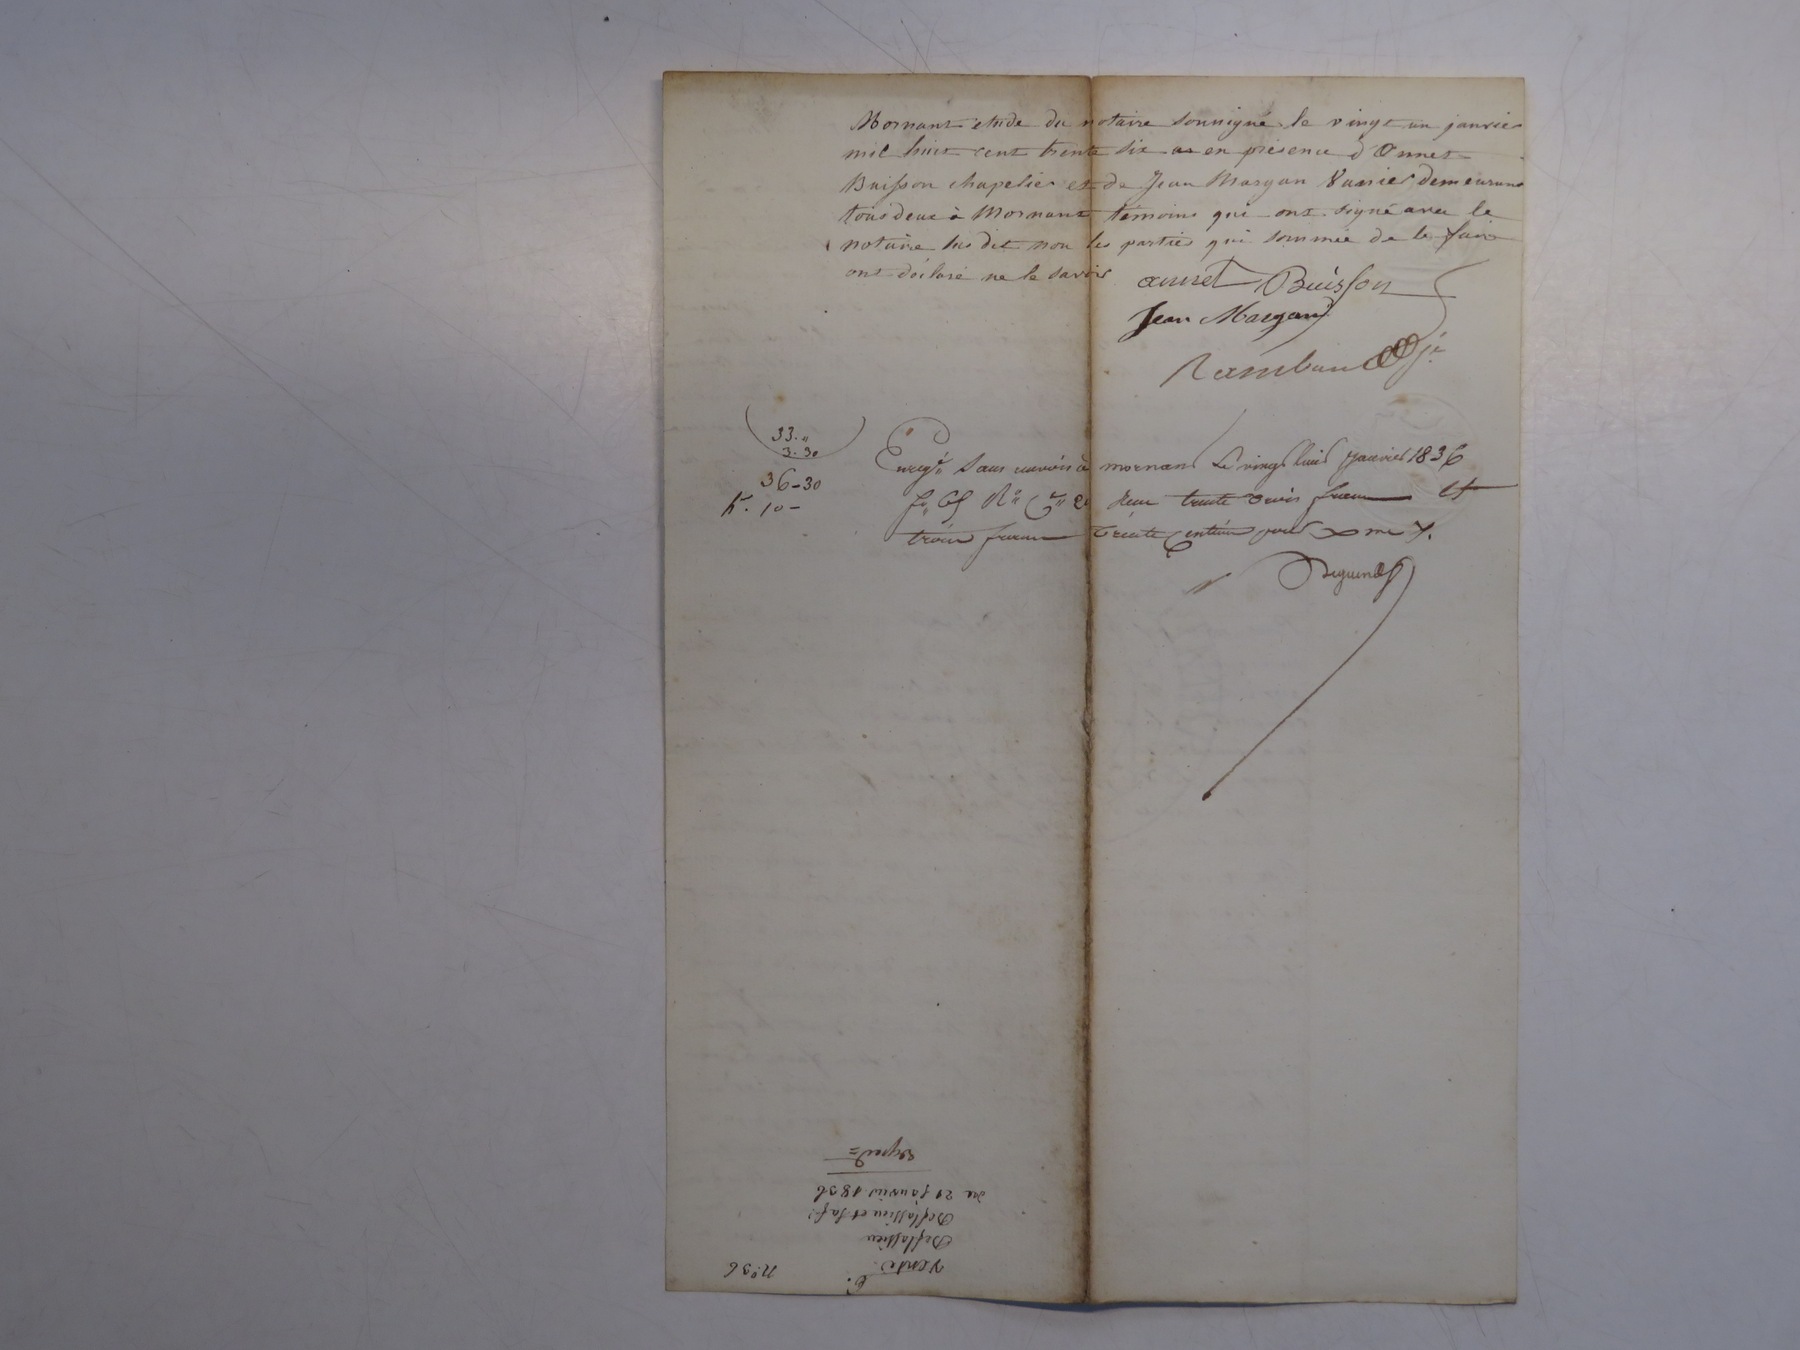 Mornant etude du notaire soussigné le vingt un janvier
mil huit cent trente six as en présence d'Onnet
Buisson chapelier et de Jean Margan Vanier demeurant
tous deux à Mornant témoins qui ont signé avec le
notaire sus dit non les parties qui sommée de le faire
ont déclaré ne le savoir
onnet Buisson
Jean Margand
Rambaud
33.„
3.30
36-30
10-
Enregé sans renvois à mornant Le vingt huit Janvier 1836
Reçu trente trois francs et
trois francs trente Centimes pour
N° 36
vente
Deflassieu
Deflassieu et sa fe
du 21 janvier 1836
Expéd=